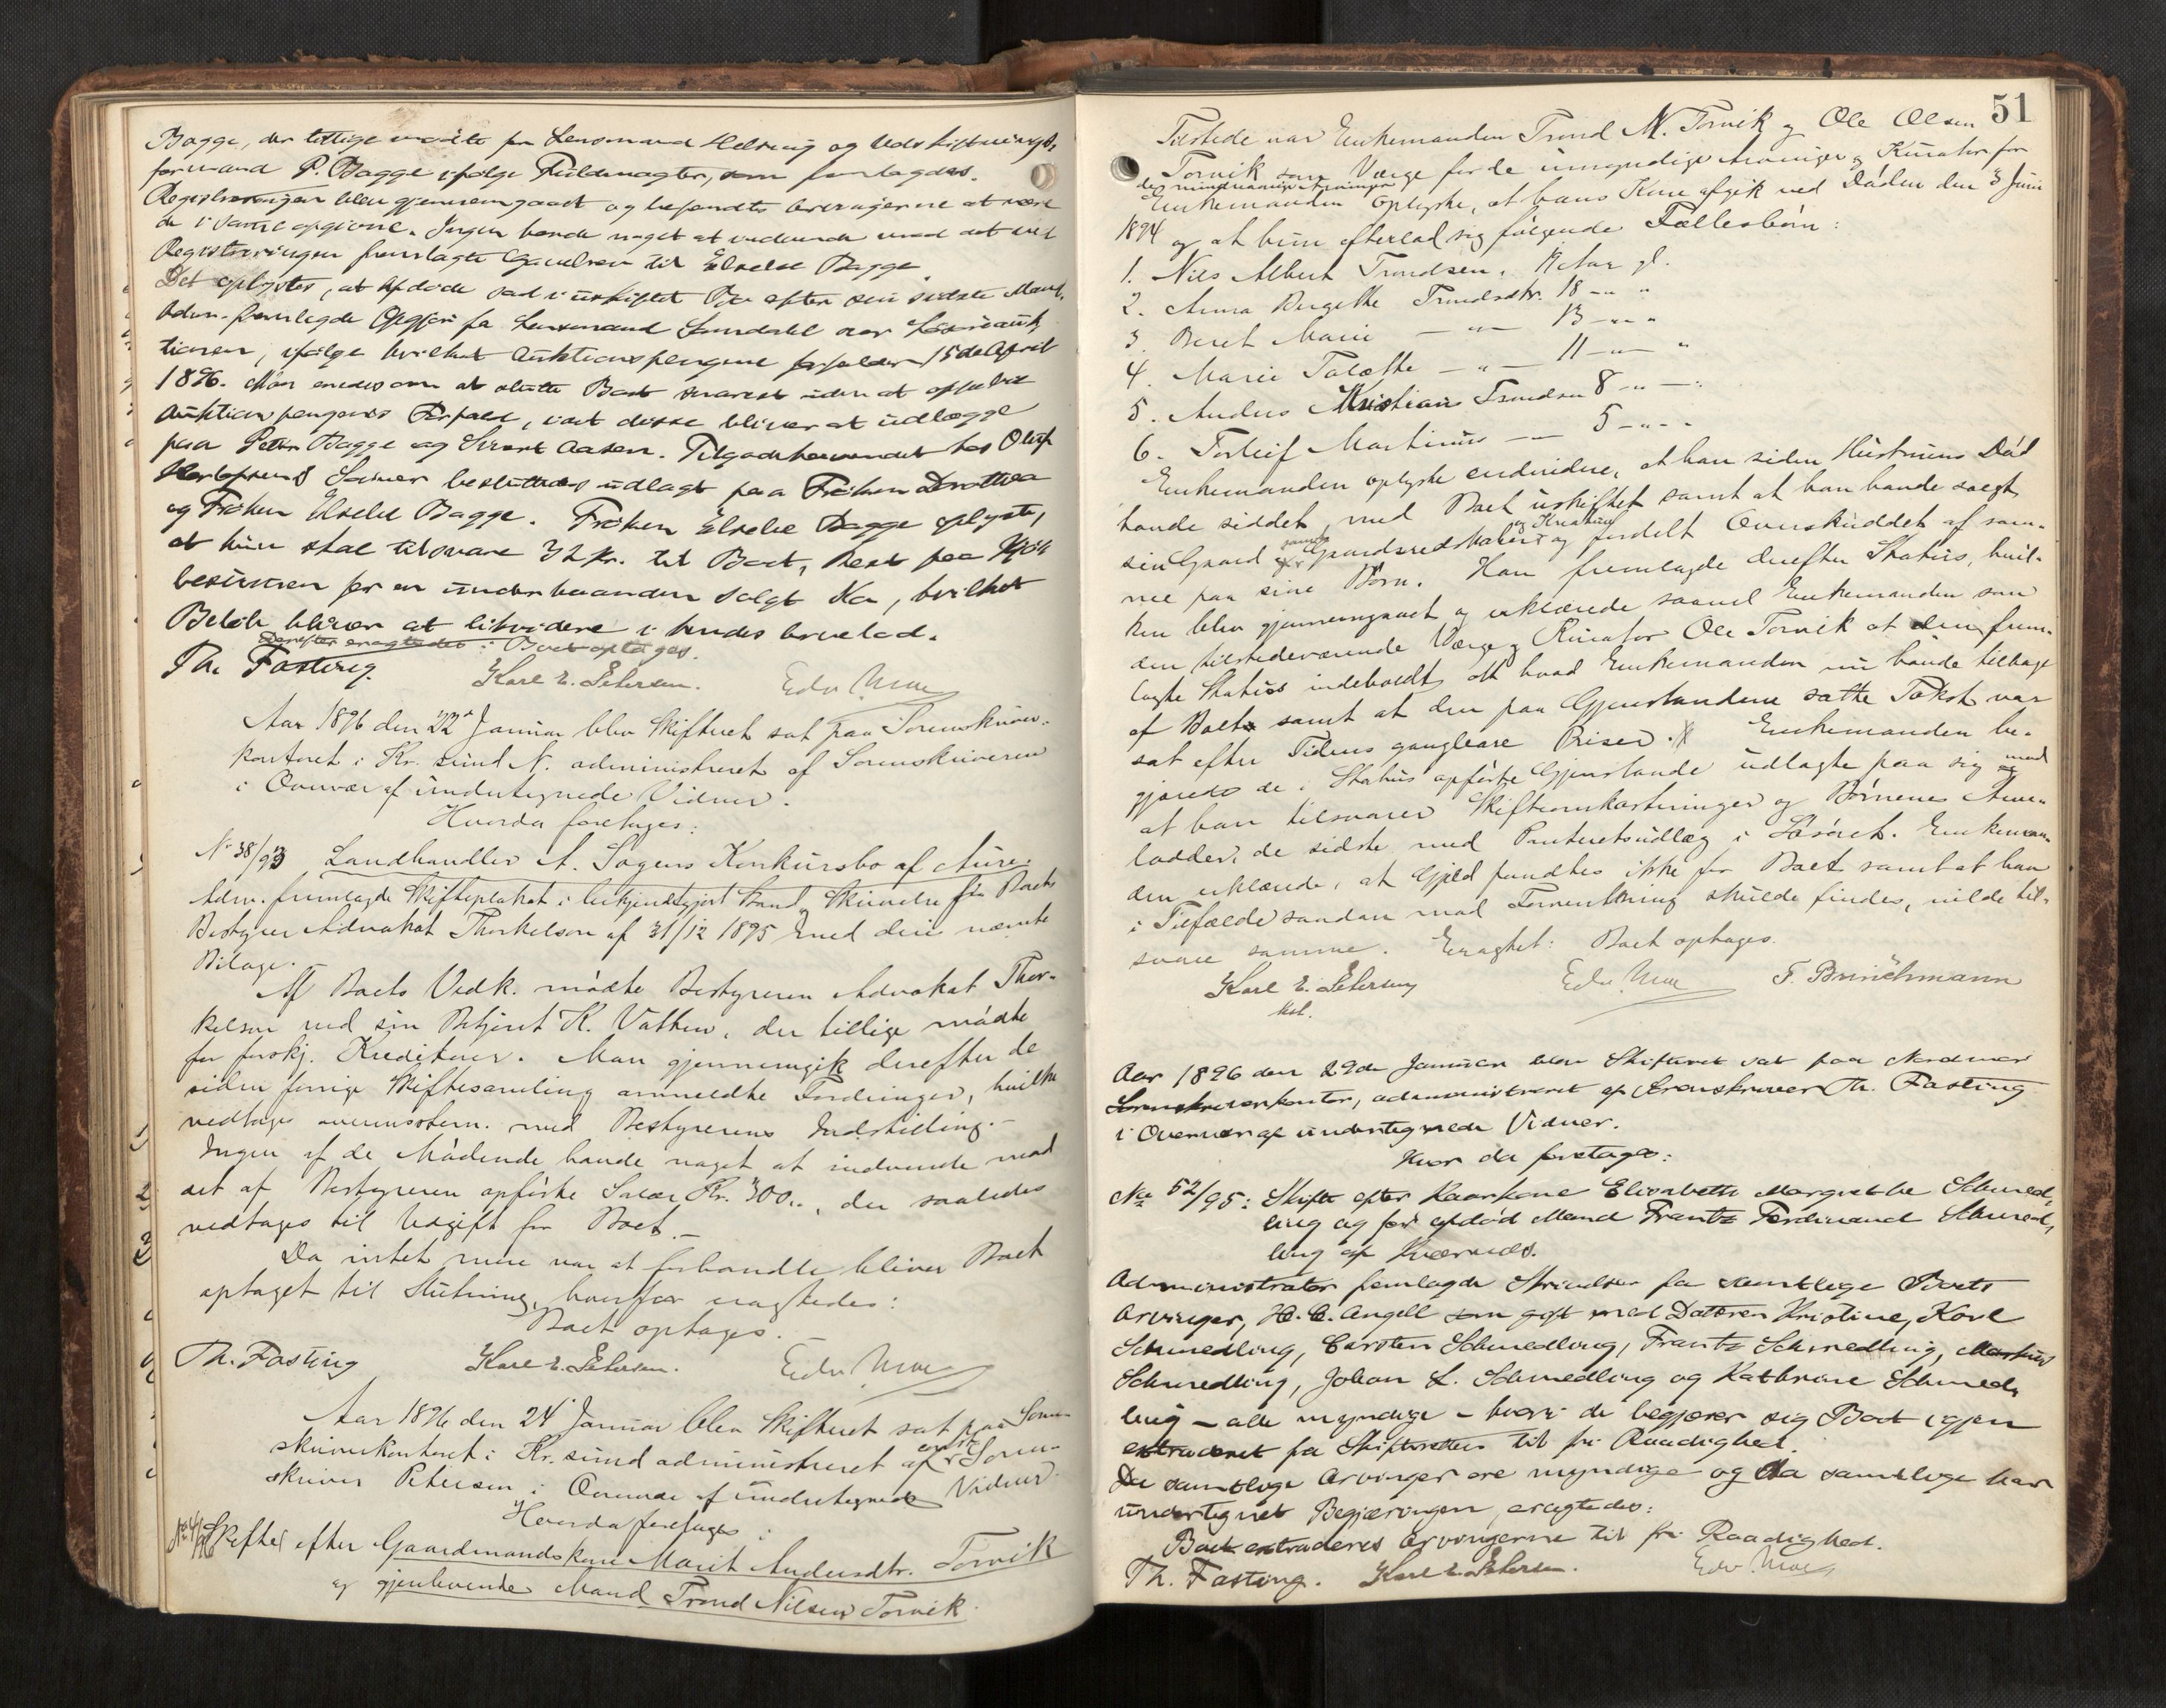 Bagge, der tillige mødte for Lensmand Helsing og Udskiftnings-
formand P. Bagge ifølge Fuldmagter, som fremlagdes.
Registreringen blev gjennemgaaet og befandtes Arvingerne at være
de i samme opgivne. Ingen havde noget at indvende mod det ved
Registreringen fremlagte Gavebrev til Elselie Bagge.
Det oplystes, at Afdøde sad i uskiftet Bo efter sin sidste Mand.
Adm. fremlagde Opgjør fra Lensmand over Løsøreauk-
tionen, ifølge hvilket Auktionspengene forfalder 15de April
1896. Man enedes om at slutte Boet snarest uden at oppebie
Auktionspengenes Forfald, idet disse bliver at udlægge
paa Peter Bagge og Sivert Aasen. Tilgodehavendet hos Oluf
besluttedes udlagt paa Frøken Drothea
og Frøken Elselie Bagge. Frøken Elselie Bagge oplyste,
at hun skal tilsvare 32 kr. til Boet, Rest paa Kjøb
besummen for en underhaanden solgt Ko, hvilket
Beløb bliver at likvidere i hendes Arvelod.
Derefter eragtedes: Boet optages.
Th. Fasting. Karl E. Petersen. Edv. Moe
Aar 1896 den 22de Januar blev Skifteret sat paa Sorenskriver-
kontoret i Kr.sund N. administreret af Sorenskriveren
i Overvær af undertegnede Vidner.
Hvorda foretages:
No 38/93 Landhandler A. Sagens Konkursbo af Aure.
Adm. fremlagde Skifteplakat i bekjendtgjort Stand, Skrivelse fra Boets
Bestyrer Advokat Thorkelson af 31/12 1895 med deri nævnte
Bilage.
Af Boets Vedk. mødte Bestyreren Advokat Thor-
kelson ved sin Betjent K. Vatten, der tillige mødte
for forskj. Kreditorer. Man gjennemgik derefter de
siden forrige Skiftesamling anmeldte Fordringer, hvilke
vedtages overensstem. med Bestyrerens Indstilling.-
Ingen af de Mødende havde noget at indvende mod
det af Bestyreren opførte Salær Kr. 300.., der saaledes
vedtages til Udgift for Boet.-
Da intet mere var at forhandle bliver Boet
optaget til Slutning, hvorfor eragtedes:
Boet optages.
Th. Fasting Karl E. Petersen. Edv. Moe
Aar 1896 den 24' Januar blev Skifteret sat paa Soren-
skriverkontoret i Kr.sund administreret af const. Soren-
skriver Petersen i Overvær af undertegnede Vidner.
Hvorda foretages:
Skiftet efter Gaardmandskone Marit Andersdtr. Torvik
og gjenlevende Mand Trond Nilsen Torvik.
51
Tilstede var Enkemanden Trond N. Torvik og Ole Olsen
Torvik som Værge for de umyndige Arvinger og Kurator for
de mindreaarige Arvinger
Enkemanden oplyste, at hans Kone afgik ved Døden den 3 Juni
1894 og at hun efterlod sig følgende Fællesbørn:
1. Nils Albert Trondsen, Aar gl.
2. Anna Bergitte Trondsdtr. 18 -"- "
3. Beret Marie -"- 13 -"- "
4. Marie Talette -"- 11 -"- "
5. Anders Kristian Trondsen 8 -"- "
6. Torleif Martinus -"- 5 -"- "
Enkemanden oplyste endvidere, at han siden Hustruens Død
havde siddet med Boet uskiftet samt at han havde solgt
sin Gaard samt Gaardsredskaber og Kreaturer og fordelt Overskuddet af sam-
me paa sine Børn. Han fremlagde derefter Status, hvil-
ken blev gjennemgaaet og erklærede saavel Enkemanden som
den tilstedeværende Værge og Kurator Ole Torvik at den frem-
lagte Status indeholdt alt hvad Enkemanden nu havde tilbage
af Boet samt at den paa Gjenstandene satte Takst var
sat efter Tidens gangbare Priser. Enkemanden be-
gjærede de i Status opførte Gjenstande udlagte paa sig mod
at han tilsvarer Skifteomkostninger og Børnenes Arve-
lodder, de sidste med Panteretsudlæg i Løsøret. Enkeman-
den erklærede, at Gjæld fandtes ikke for Boet samt at han
i Tilfælde saadan mod Formentning skulde findes, vilde til-
svare samme. Eragtet: Boet optages.
Karl E. Petersen Edv. Moe T. Brinchmann
kst.
Aar 1896 den 29de Januar blev Skifteret sat paa Nordmør
Sorenskriverkontor, administreret af Sorenskriver Th. Fasting
i Overvær af undertegnede Vidner.
Hvor da foretages:
No 52/95: Skifte efter Kaarkone Elisabeth Margrethe Schmed-
ling og før afdød Mand Frantz Ferdinand Schmed-
ling af Kværnes.
Administrator fremlagde Skrivelse fra samtlige Boets
Arvinger, H. C. Angell som gift med Datteren Kristine, Karl
Schmedling, Carsten Schmedling, Frantz Schmedling, Markus
Schmedling, Johan L. Schmedling og Kathrine Schmed-
ling - alle myndige - hvori de begjærer sig Boet igjen
extraderet fra Skifteretten til fri Raadighed.
Da samtlige Arvinger ere myndige og da samtlige har
undertegnet Begjæringen, eragtedes:
Boet extraderes Arvingerne til fri Raadighed.
Th. Fasting. Karl E. Petersen. Edv. Moe